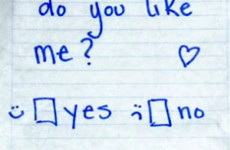 do you like
me?
yes no